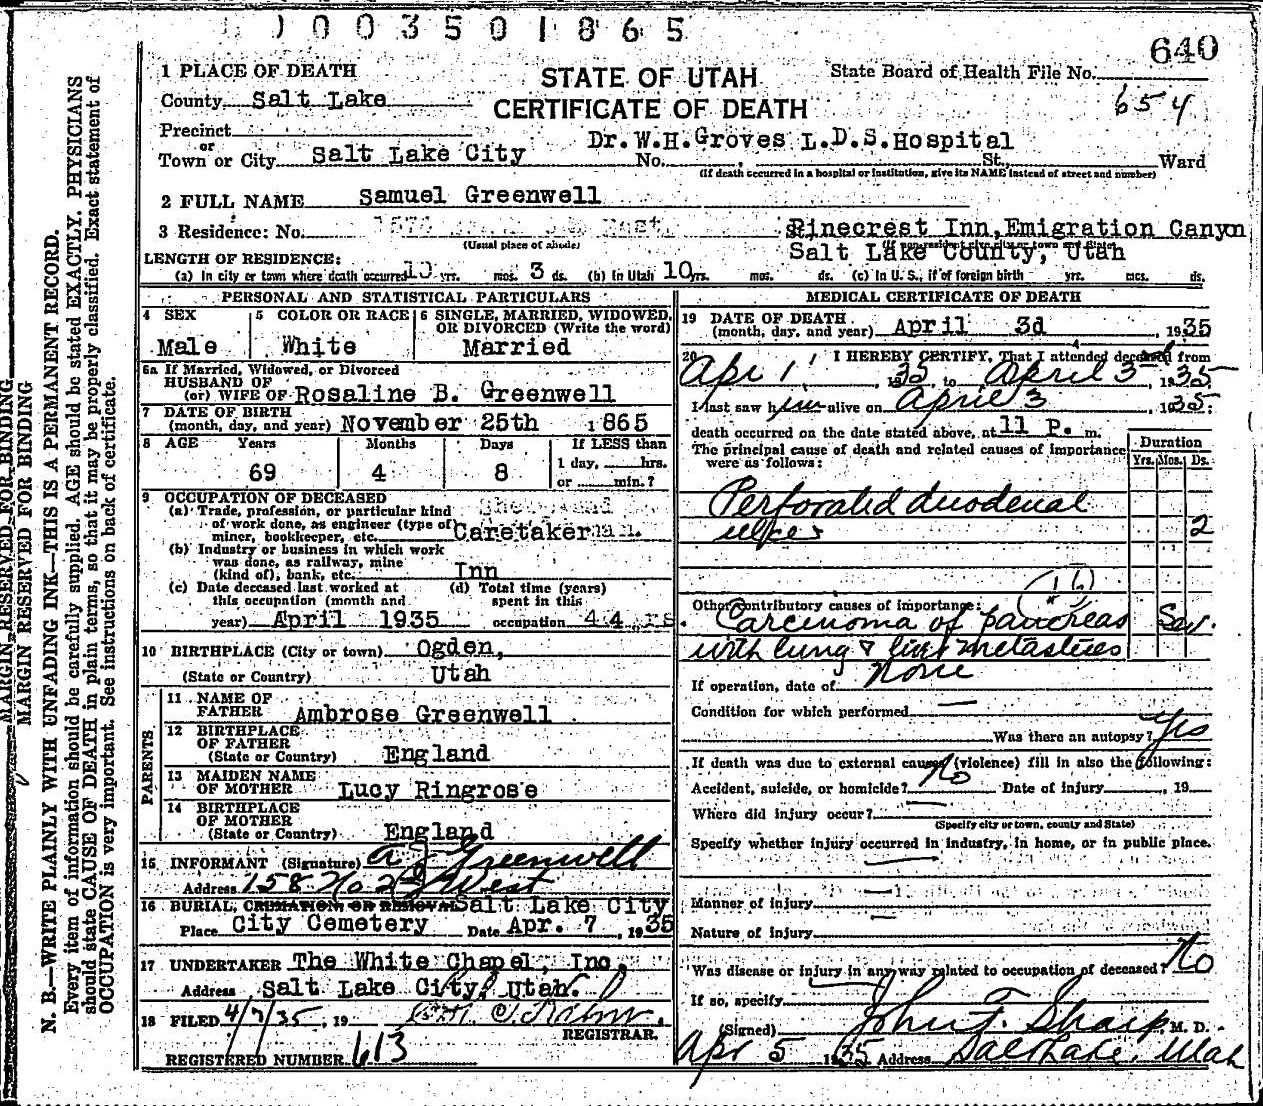 1 0 0 3 5 0 1 8 6 5
640
1 PLACE OF DEATH
STATE OF UTAH
CERTIFICATE OF DEATH
State Board of Health File No.
654
County Salt Lake
Precinct
or
Town or City Salt Lake City
Dr. W.H. Groves L.D.S. Hospital
No. , St., Ward
(If death occurred in a hospital or institution, give its NAME instead of street and number)
2 FULL NAME Samuel Greenwell
3 Residence: No.
Pinecrest Inn, Emigration Canyon
(Usual place of abode)
Salt Lake County, Utah
LENGTH OF RESIDENCE:
(a) In city or town where death occurred 10 yrs. mos. 3 ds. (b) In Utah 10 yrs. mos. ds. (c) In U. S., if of foreign birth yrs. mos. ds.
PERSONAL AND STATISTICAL PARTICULARS
4 SEX
Male
5 COLOR OR RACE
White
6 SINGLE, MARRIED, WIDOWED, OR DIVORCED (Write the word)
Married
6a If Married, Widowed, or Divorced
HUSBAND OF
(or) WIFE OF Rosaline B. Greenwell
7 DATE OF BIRTH
(month, day, and year) November 25th 1865
8 AGE Years Months Days If LESS than
69 4 8 1 day, hrs.
or min.?
9 OCCUPATION OF DECEASED
(a) Trade, profession, or particular kind
of work done, as engineer (type of)
miner, bookkeeper, etc. Caretaker
(b) Industry or business in which work
was done, as railway, mine
(kind of), bank, etc. Inn
(c) Date deceased last worked at
this occupation (month and
year) April 1935
(d) Total time (years)
spent in this
occupation 44 yrs.
10 BIRTHPLACE (City or town) Ogden,
(State or Country) Utah
PARENTS
11 NAME OF
FATHER Ambrose Greenwell
12 BIRTHPLACE
OF FATHER
(State or Country) England
13 MAIDEN NAME
OF MOTHER Lucy Ringrose
14 BIRTHPLACE
OF MOTHER
(State or Country) England
15 INFORMANT (Signature) A J Greenwell
Address 158 No 2d West
16 BURIAL, CREMATION, OR REMOVAL Salt Lake City
Place City Cemetery Date Apr. 7, 1935
17 UNDERTAKER The White Chapel, Inc.
Address Salt Lake City, Utah.
18 FILED 4/7/35, 19
REGISTRAR.
REGISTERED NUMBER 613
MEDICAL CERTIFICATE OF DEATH
19 DATE OF DEATH
(month, day, and year) April 3d , 1935
20 I HEREBY CERTIFY, That I attended deceased from
Apr 1, 1935 to April 3, 1935
I last saw him alive on April 3 1935;
death occurred on the date stated above, at 11 P. m.
The principal cause of death and related causes of importance
were as follows:
Duration
Yrs. Mos. Ds.
Perforated duodenal
ulcer 2
Other contributory causes of importance:
Carcinoma of pancreas
with lung & liver metastases
If operation, date of None
Condition for which performed —
Was there an autopsy? Yes
If death was due to external causes (violence) fill in also the following:
Accident, suicide, or homicide? No Date of injury , 19
Where did injury occur? —
(Specify city or town, county and State)
Specify whether injury occurred in industry, in home, or in public place.
Manner of injury
Nature of injury
Was disease or injury in any way related to occupation of deceased? No
If so, specify
(Signed) John F. Sharp, M. D.
Apr 5 1935 Address Salt Lake, Utah
MARGIN RESERVED FOR BINDING
MARGIN RESERVED FOR BINDING
N. B.—WRITE PLAINLY WITH UNFADING INK—THIS IS A PERMANENT RECORD.
Every item of information should be carefully supplied. AGE should be stated EXACTLY. PHYSICIANS
should state CAUSE OF DEATH in plain terms, so that it may be properly classified. Exact statement of
OCCUPATION is very important. See instructions on back of certificate.